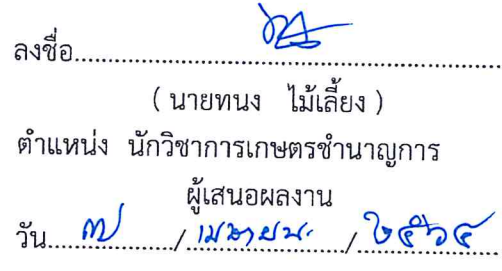 ลงชื่อ
( นายทนง ไม้เลี้ยง )
ตำแหน่ง นักวิชาการเกษตรชำนาญการ
ผู้เสนอผลงาน
วัน ๗ / เมษายน / ๒๕๖๔